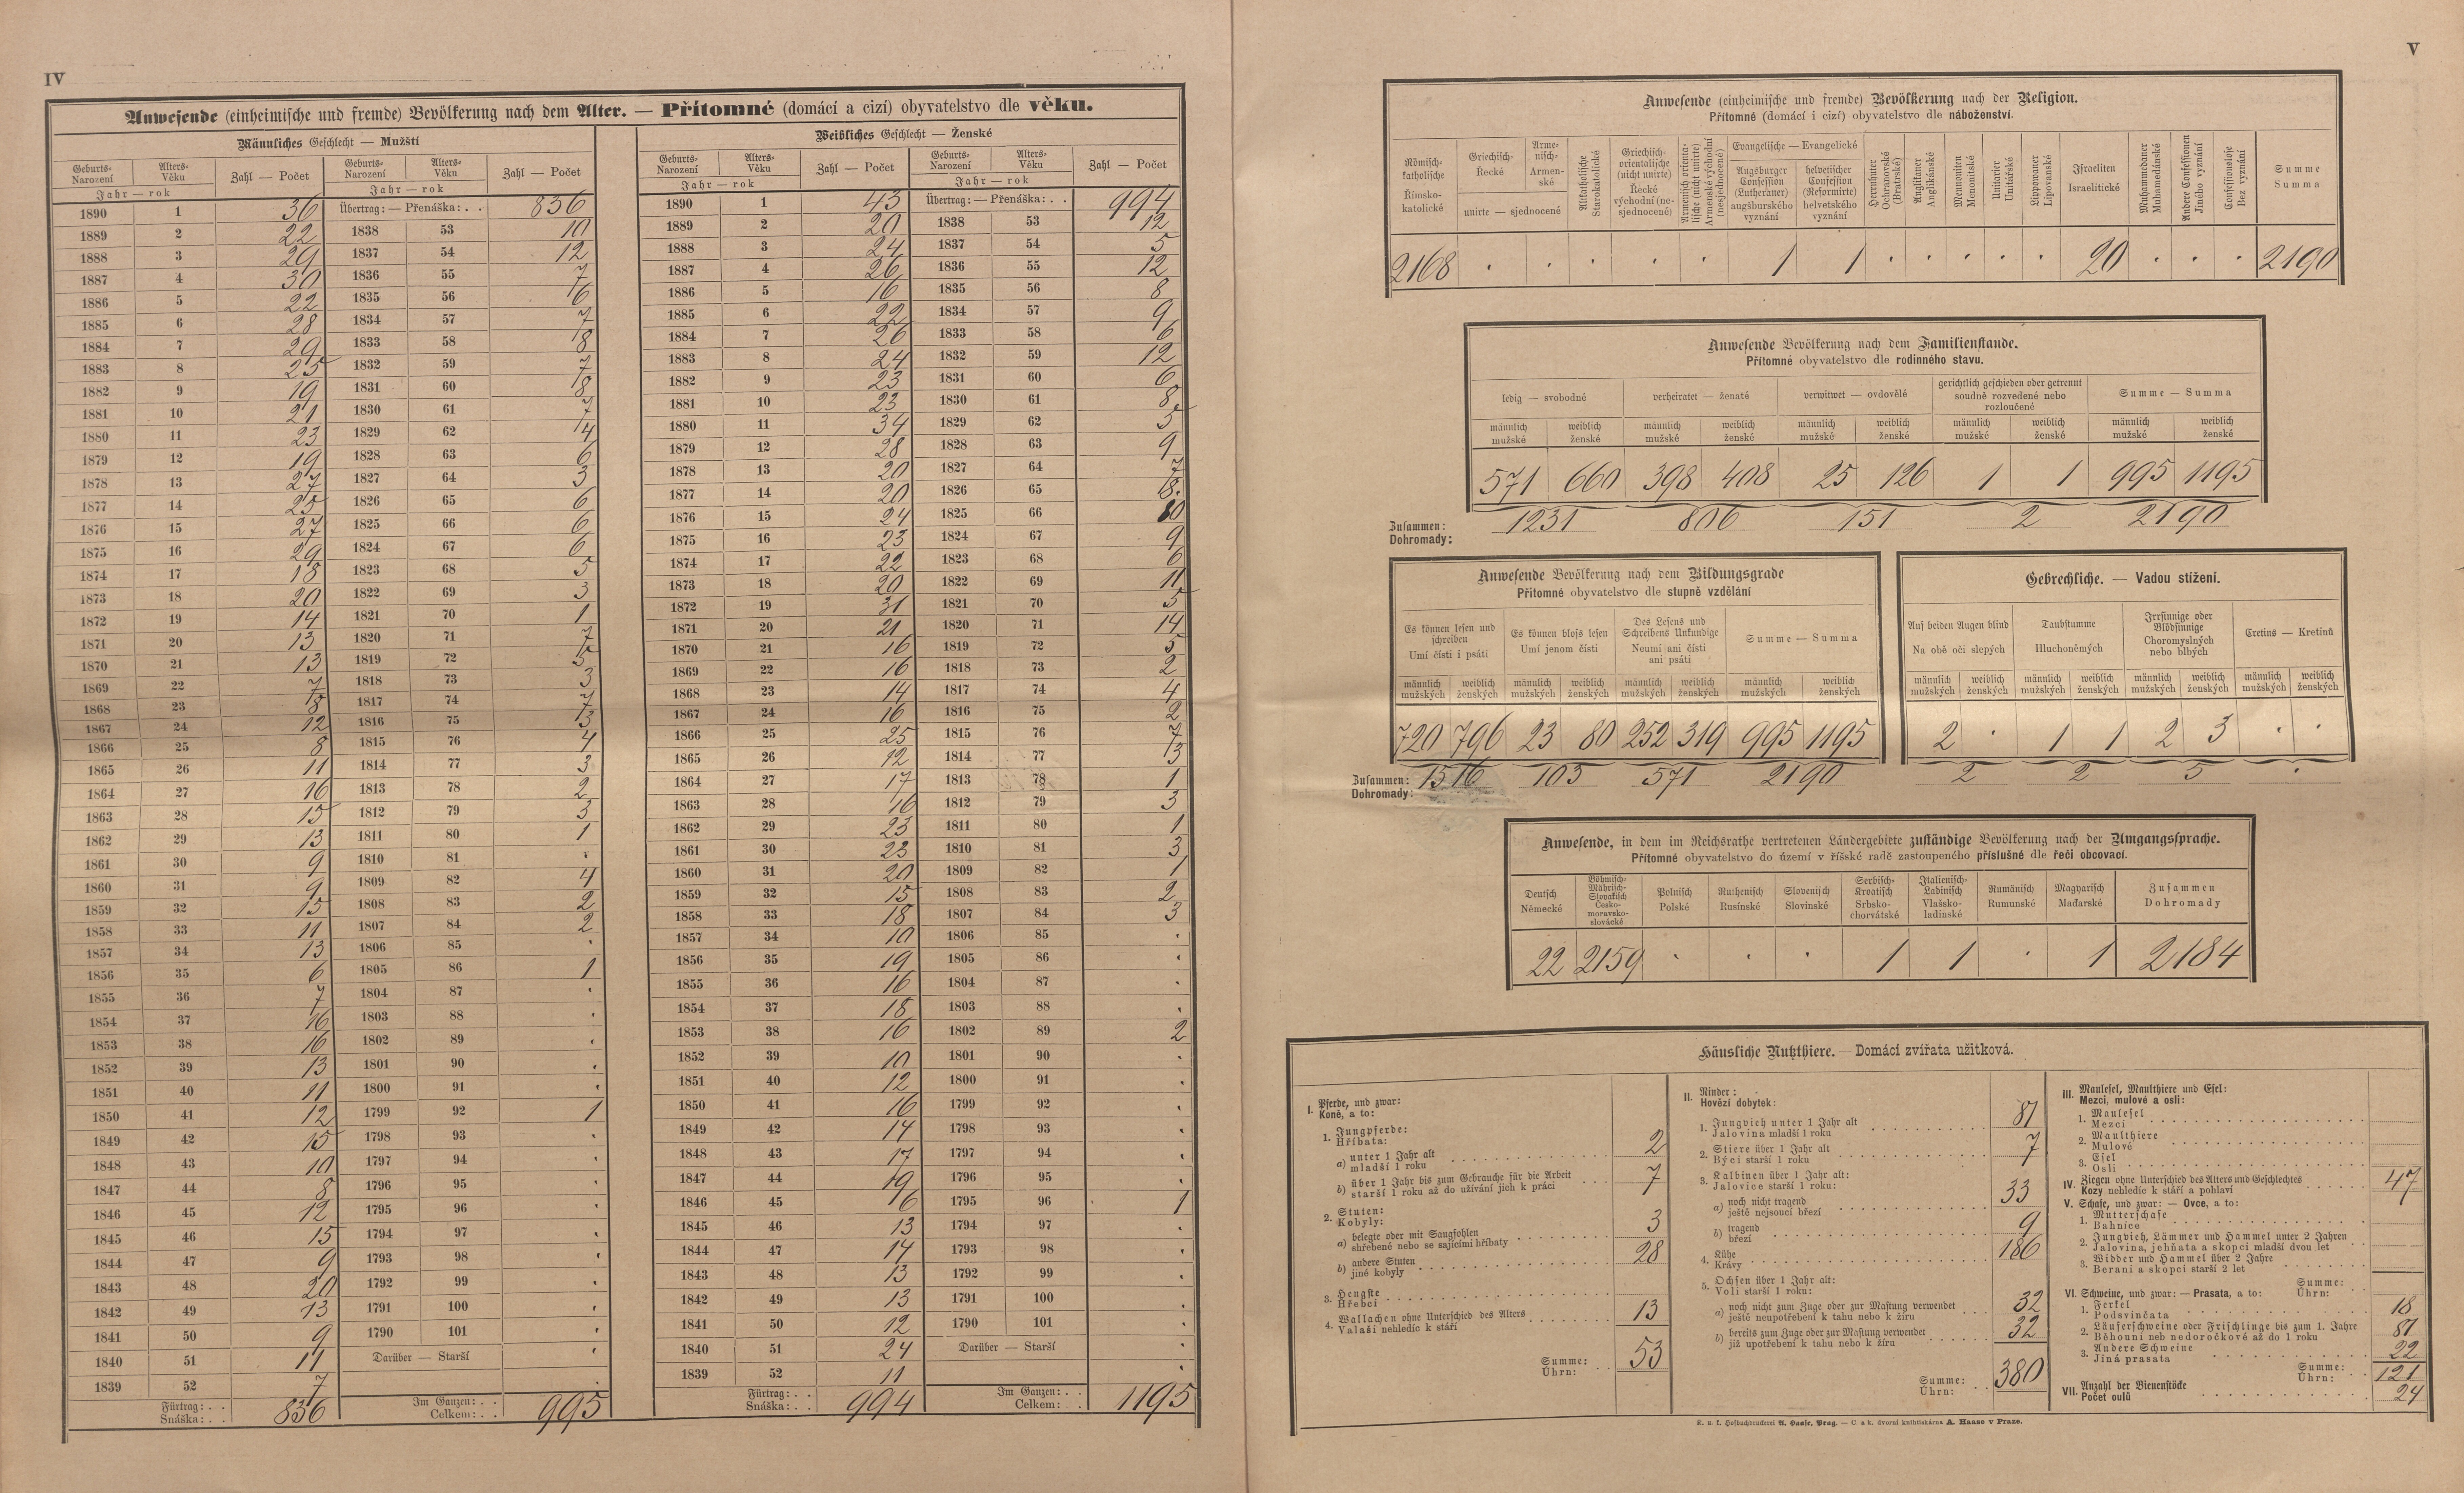 IV
Anwesende (einheimische und fremde) Bevölkerung nach dem Alter. — Přítomné (domácí a cizí) obyvatelstvo dle věku.
Männliches Geschlecht — Mužští
Geburts- Narození Alters- Věku Zahl — Počet Geburts- Narození Alters- Věku Zahl — Počet
Jahr — rok Jahr — rok
1890 1 36 Übertrag: — Přenáška: . . 836
1889 2 22 1838 53 10
1888 3 29 1837 54 12
1887 4 30 1836 55 7
1886 5 22 1835 56 6
1885 6 28 1834 57 7
1884 7 29 1833 58 8
1883 8 25 1832 59 7
1882 9 19 1831 60 8
1881 10 21 1830 61 7
1880 11 23 1829 62 4
1879 12 19 1828 63 6
1878 13 27 1827 64 3
1877 14 25 1826 65 6
1876 15 27 1825 66 6
1875 16 29 1824 67 6
1874 17 18 1823 68 5
1873 18 20 1822 69 3
1872 19 14 1821 70 1
1871 20 13 1820 71 7
1870 21 13 1819 72 5
1869 22 7 1818 73 3
1868 23 18 1817 74 7
1867 24 12 1816 75 3
1866 25 8 1815 76 4
1865 26 11 1814 77 3
1864 27 16 1813 78 2
1863 28 15 1812 79 3
1862 29 13 1811 80 1
1861 30 9 1810 81 .
1860 31 9 1809 82 4
1859 32 15 1808 83 2
1858 33 11 1807 84 2
1857 34 13 1806 85 .
1856 35 6 1805 86 1
1855 36 7 1804 87 .
1854 37 16 1803 88 .
1853 38 16 1802 89 .
1852 39 13 1801 90 .
1851 40 11 1800 91 .
1850 41 12 1799 92 1
1849 42 15 1798 93 .
1848 43 10 1797 94 .
1847 44 8 1796 95 .
1846 45 12 1795 96 .
1845 46 15 1794 97 .
1844 47 9 1793 98 .
1843 48 20 1792 99 .
1842 49 13 1791 100 .
1841 50 9 1790 101 .
1840 51 11 Darüber — Starší .
1839 52 7 .
Fürtrag: . . Snáška: . . 836 Im Ganzen: . . Celkem: . . 995
Weibliches Geschlecht — Ženské
Geburts- Narození Alters- Věku Zahl — Počet Geburts- Narození Alters- Věku Zahl — Počet
Jahr — rok Jahr — rok
1890 1 43 Übertrag: — Přenáška: . . 994
1889 2 20 1838 53 12
1888 3 24 1837 54 5
1887 4 26 1836 55 12
1886 5 16 1835 56 8
1885 6 22 1834 57 9
1884 7 26 1833 58 6
1883 8 24 1832 59 12
1882 9 23 1831 60 6
1881 10 23 1830 61 8
1880 11 34 1829 62 5
1879 12 28 1828 63 9
1878 13 20 1827 64 7
1877 14 20 1826 65 8
1876 15 24 1825 66 10
1875 16 23 1824 67 9
1874 17 22 1823 68 6
1873 18 20 1822 69 11
1872 19 31 1821 70 5
1871 20 21 1820 71 14
1870 21 16 1819 72 5
1869 22 16 1818 73 2
1868 23 14 1817 74 4
1867 24 16 1816 75 2
1866 25 25 1815 76 7
1865 26 12 1814 77 3
1864 27 17 1813 78 1
1863 28 16 1812 79 3
1862 29 23 1811 80 1
1861 30 23 1810 81 3
1860 31 20 1809 82 1
1859 32 15 1808 83 2
1858 33 18 1807 84 3
1857 34 10 1806 85 .
1856 35 19 1805 86 .
1855 36 16 1804 87 .
1854 37 18 1803 88 .
1853 38 16 1802 89 2
1852 39 10 1801 90 .
1851 40 12 1800 91 .
1850 41 16 1799 92 .
1849 42 14 1798 93 .
1848 43 17 1797 94 .
1847 44 19 1796 95 .
1846 45 16 1795 96 1
1845 46 13 1794 97 .
1844 47 14 1793 98 .
1843 48 13 1792 99 .
1842 49 13 1791 100 .
1841 50 12 1790 101 .
1840 51 24 Darüber — Starší .
1839 52 11 .
Fürtrag: . . Snáška: . . 994 Im Ganzen: . . Celkem: . . 1195
V
Anwesende (einheimische und fremde) Bevölkerung nach der Religion.
Přítomné (domácí i cizí) obyvatelstvo dle náboženství.
Römisch-katholische Římsko-katolické
Griechisch- Řecké
Armenisch- Armenské
unirte — sjednocené
Altkatholische Starokatolické
Griechisch-orientalische (nicht unirte) Řecké východní (nesjednocené)
Armenisch orientalische (nicht unirte) Armenské východní (nesjednocené)
Evangelische — Evangelické
Augsburger Confession (Lutheraner) augšburského vyznání
helvetischer Confession (Reformirte) helvetského vyznání
Herrnhuter Ochranovské (Bratrské)
Anglikaner Anglikánské
Mennoniten Menonitské
Unitarier Unitářské
Lippowaner Lipovanské
Israeliten Israelitické
Muhammedaner Muhamedánské
Andere Confessionen Jiného vyznání
Confessionslose Bez vyznání
Summe Summa
2168 . . . . . 1 1 . . . . . 20 . . . 2190
Anwesende Bevölkerung nach dem Familienstande.
Přítomné obyvatelstvo dle rodinného stavu.
ledig — svobodné verheiratet — ženaté verwitwet — ovdovělé gerichtlich geschieden oder getrennt soudně rozvedené nebo rozloučené Summe — Summa
männlich mužské weiblich ženské männlich mužské weiblich ženské männlich mužské weiblich ženské männlich mužské weiblich ženské männlich mužské weiblich ženské
571 660 398 408 25 126 1 1 995 1195
Zusammen: Dohromady: 1231 806 151 2 2190
Anwesende Bevölkerung nach dem Bildungsgrade
Přítomné obyvatelstvo dle stupně vzdělání
Es können lesen und schreiben Umí čísti i psáti
Es können bloss lesen Umí jenom čísti
Des Lesens und Schreibens Unkundige Neumí ani čísti ani psáti
Summe — Summa
männlich mužských weiblich ženských männlich mužských weiblich ženských männlich mužských weiblich ženských männlich mužských weiblich ženských
720 796 23 80 252 319 995 1195
Zusammen: Dohromady: 1516 103 571 2190
Gebrechliche. — Vadou stižení.
Auf beiden Augen blind Na obě oči slepých
Taubstumme Hluchoněmých
Irrsinnige oder Blödsinnige Choromyslných nebo blbých
Cretins — Kretinů
männlich mužských weiblich ženských männlich mužských weiblich ženských männlich mužských weiblich ženských männlich mužských weiblich ženských
2 . 1 1 2 3 . .
2 2 5 .
Anwesende, in dem im Reichsrathe vertretenen Ländergebiete zuständige Bevölkerung nach der Umgangssprache.
Přítomné obyvatelstvo do území v říšské radě zastoupeného příslušné dle řeči obcovací.
Deutsch Německé
Böhmisch-Mährisch-Slovakisch Česko-moravsko-slovácké
Polnisch Polské
Ruthenisch Rusínské
Slovenisch Slovinské
Serbisch-Kroatisch Srbsko-chorvátské
Italienisch-Ladinisch Vlašsko-ladinské
Rumänisch Rumunské
Magyarisch Maďarské
Zusammen Dohromady
22 2159 . . . 1 1 . 1 2184
Häusliche Nutzthiere. — Domácí zvířata užitková.
I. Pferde, und zwar:
Koně, a to:
1. Jungpferde:
Hříbata:
a) unter 1 Jahr alt
mladší 1 roku 2
b) über 1 Jahr bis zum Gebrauche für die Arbeit
starší 1 roku až do užívání jich k práci 7
2. Stuten:
Kobyly:
a) belegte oder mit Saugfohlen
shřebené nebo se sajícími hříbaty 3
b) andere Stuten
jiné kobyly 28
3. Hengste
Hřebci
4. Wallachen ohne Unterschied des Alters
Valaši nehledíc k stáří 13
Summe:
Úhrn: 53
II. Rinder:
Hovězí dobytek:
1. Jungvieh unter 1 Jahr alt
Jalovina mladší 1 roku 81
2. Stiere über 1 Jahr alt
Býci starší 1 roku 7
3. Kalbinen über 1 Jahr alt:
Jalovice starší 1 roku:
a) noch nicht tragend
ještě nejsoucí březí 33
b) tragend
březí 9
4. Kühe
Krávy 186
5. Ochsen über 1 Jahr alt:
Voli starší 1 roku:
a) noch nicht zum Zuge oder zur Mastung verwendet
ještě neupotřebení k tahu nebo k žíru 32
b) bereits zum Zuge oder zur Mastung verwendet
již upotřebení k tahu nebo k žíru 32
Summe:
Úhrn: 380
III. Maulesel, Maulthiere und Esel:
Mezci, mulové a osli:
1. Maulesel
Mezci
2. Maulthiere
Mulové
3. Esel
Osli
IV. Ziegen ohne Unterschied des Alters und Geschlechtes
Kozy nehledíc k stáří a pohlaví 47
V. Schafe, und zwar: — Ovce, a to:
1. Mutterschafe
Bahnice
2. Jungvieh, Lämmer und Hammel unter 2 Jahren
Jalovina, jehňata a skopci mladší dvou let
3. Widder und Hammel über 2 Jahre
Berani a skopci starší 2 let
Summe:
Úhrn:
VI. Schweine, und zwar: — Prasata, a to:
1. Ferkel
Podsvinčata 18
2. Läuferschweine oder Frischlinge bis zum 1. Jahre
Běhouni neb nedoročkové až do 1 roku 81
3. Andere Schweine
Jiná prasata 22
Summe:
Úhrn: 121
VII. Anzahl der Bienenstöcke
Počet oulů 24
K. u. k. Hofbuchdruckerei A. Haase, Prag. — C. a k. dvorní knihtiskárna A. Haase v Praze.